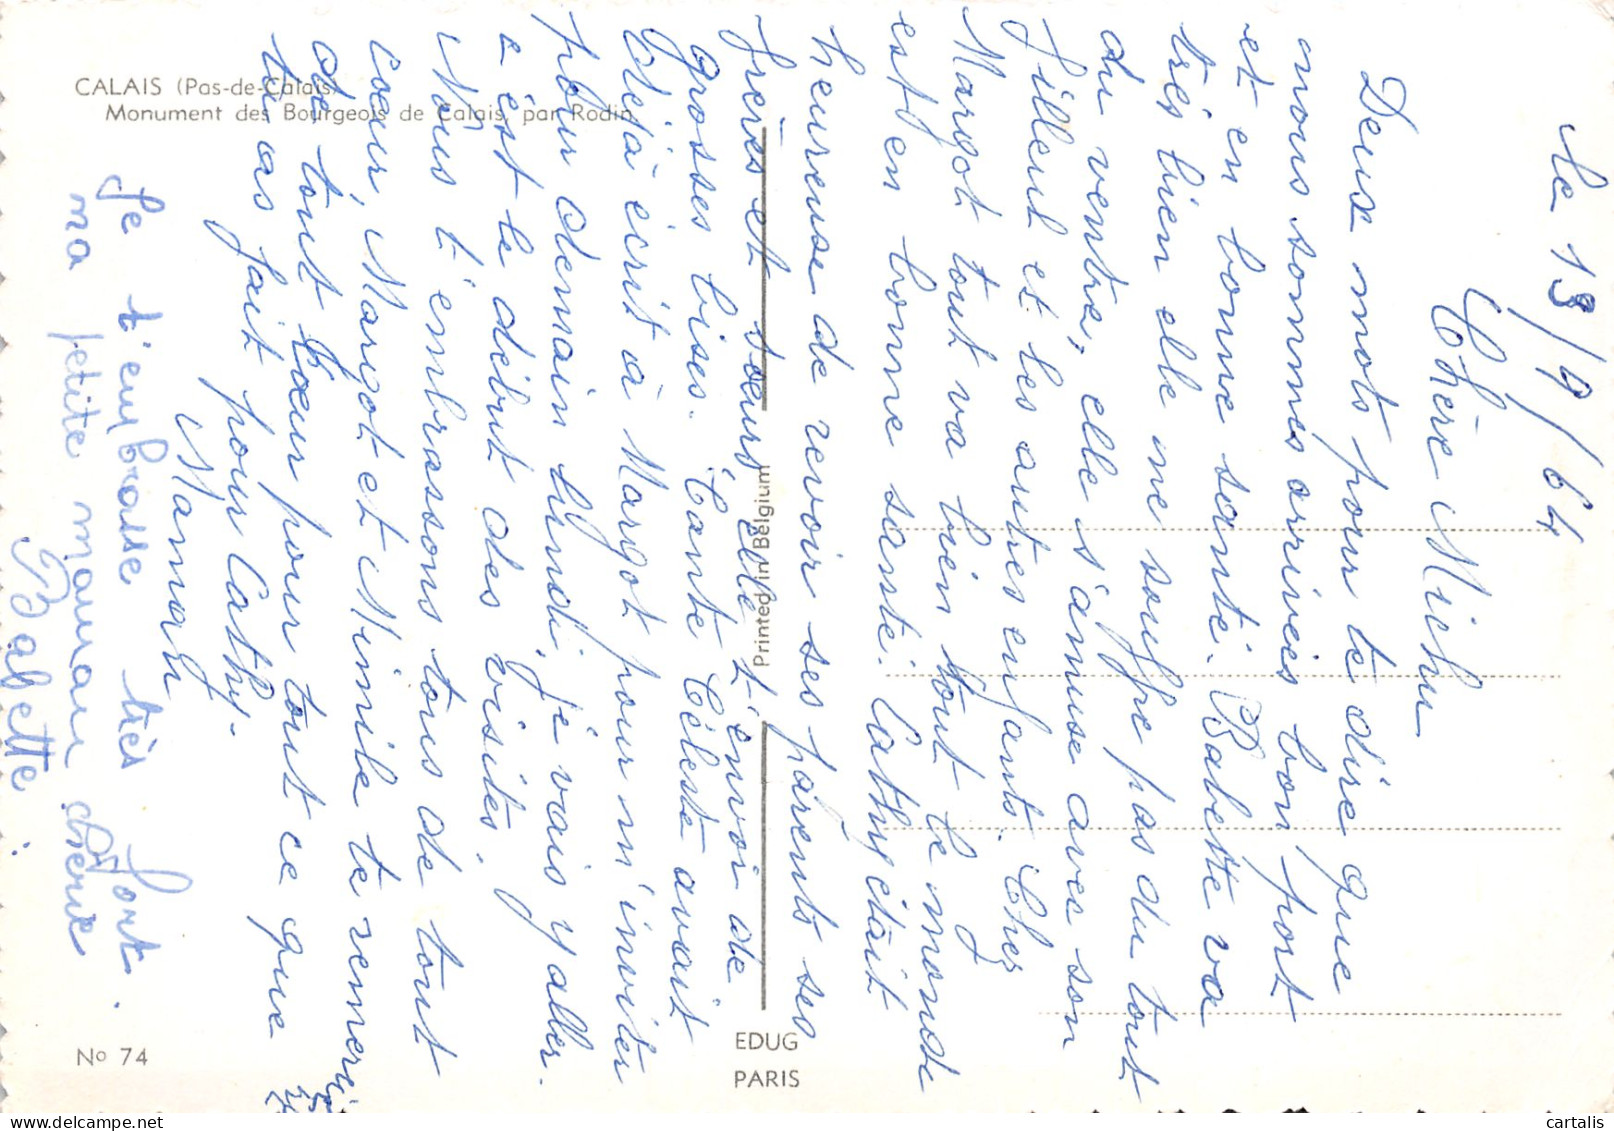 CALAIS (Pas-de-Calais)
Monument des Bourgeois de Calais, par Rodin
Printed in Belgium
EDUG
PARIS
No 74
le 13/9/64
Chère Michu
Deux mots pour te dire que
nous sommes arrivées bon port
et en bonne santé. Babette va
très bien elle ne souffre pas du tout
du ventre, elle s'amuse avec son
filleul et les autres enfants. Chez
Margot tout va bien tout le monde
est en bonne santé. Cathy était
heureuse de revoir ses parents ses
frères et soeurs, elle t'envoi de
grosses bises. Tante Céleste avait
déjà écrit à Margot pour m'inviter
pour demain lundi, je vais y aller.
c'est le début des visites.
Nous t'embrassons tous de tout
coeur, Margot et Mimile te remercie
de tout coeur pour tout ce que
tu as fait pour Cathy.
Maman
Je t'embrasse très fort.
ma petite maman chérie
Babette.
cartalis